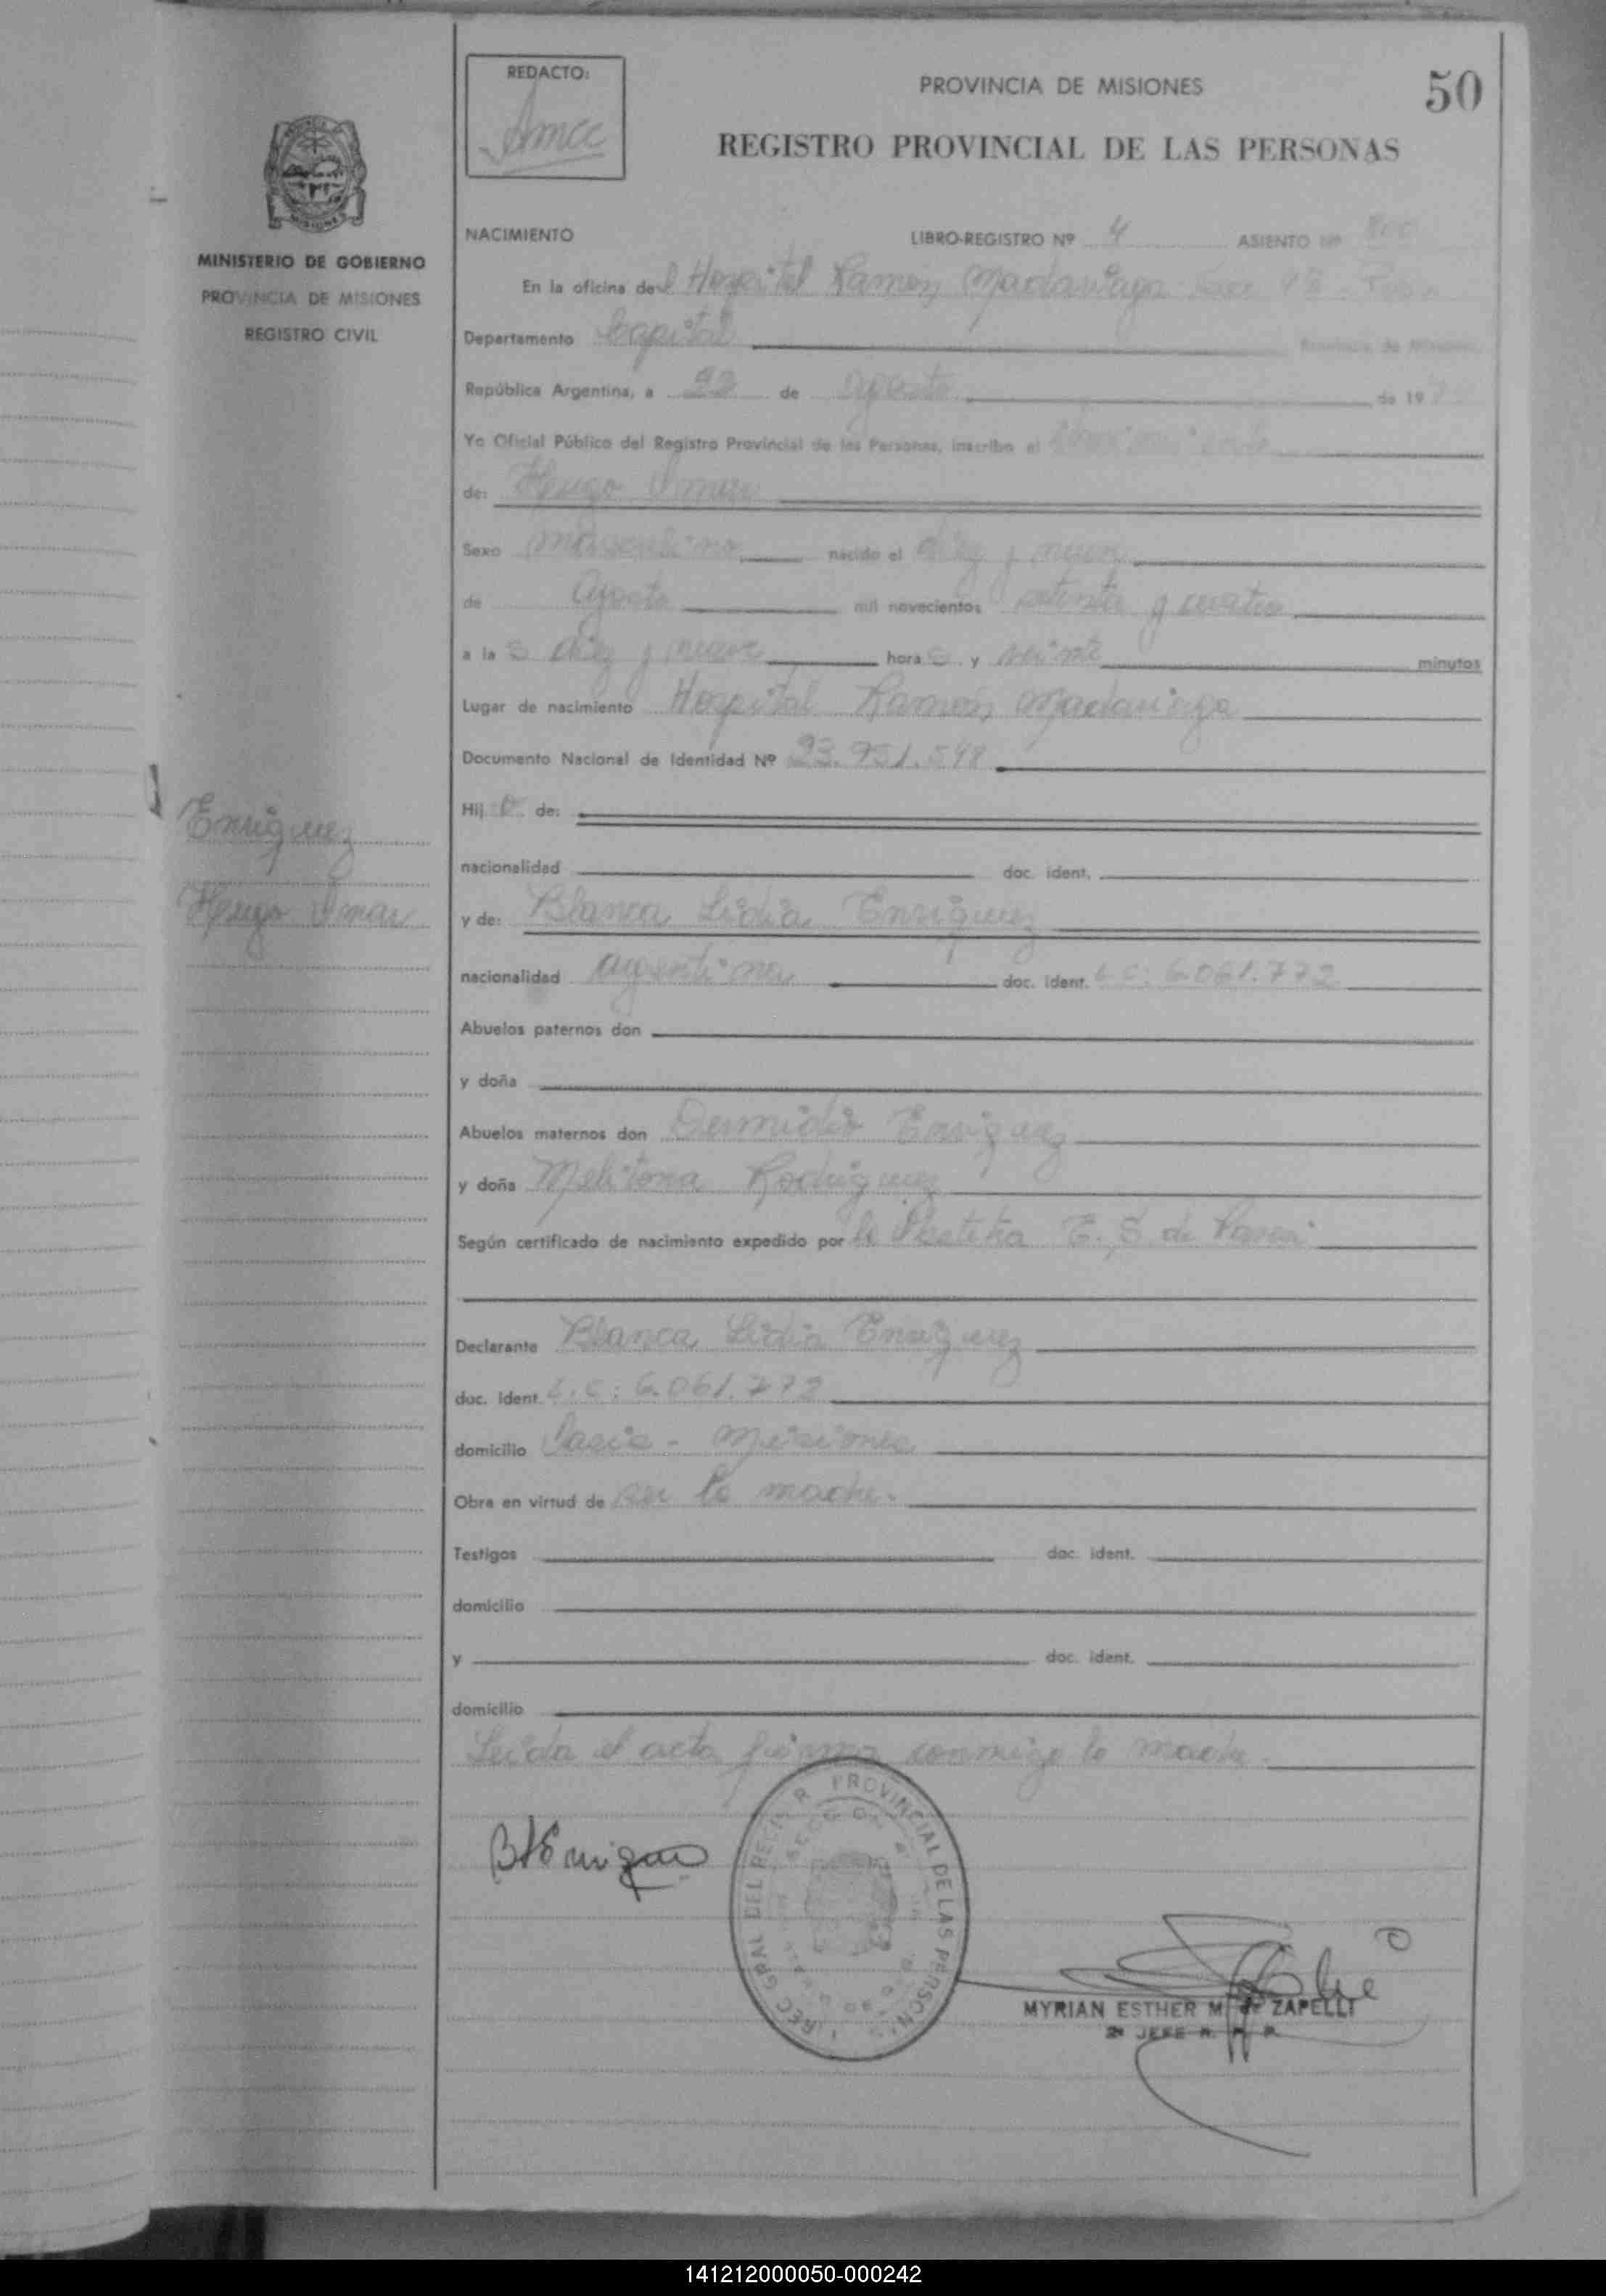 REDACTO:
PROVINCIA DE MISIONES
50
REGISTRO PROVINCIAL DE LAS PERSONAS
MINISTERIO DE GOBIERNO
PROVINCIA DE MISIONES
REGISTRO CIVIL
NACIMIENTO LIBRO-REGISTRO Nº 4 ASIENTO Nº
En la oficina del Hospital Ramón Madariaga
Departamento Capital Provincia de Misiones,
República Argentina, a de Agosto de 19
Yo Oficial Público del Registro Provincial de las Personas, inscribo el
de: Hugo Omar
Sexo masculino nacido el diez y nueve
de Agosto mil novecientos setenta y cuatro
a la s diez y nueve hora s y veinte minutos
Lugar de nacimiento Hospital Ramón Madariaga
Documento Nacional de Identidad Nº 23.951.598
Hij o de:
nacionalidad doc. ident.
Enriquez
Hugo Omar
y de: Blanca Lidia Enriquez
nacionalidad argentina doc. ident. L C: 6.061.772
Abuelos paternos don
y doña
Abuelos maternos don Enriquez
y doña Melitona Rodriguez
Según certificado de nacimiento expedido por la Partera E. S. de
Declarante Blanca Lidia Enriquez
doc. ident. L.C: 6.061.772
domicilio Misiones
Obra en virtud de ser la madre.
Testigos doc. ident.
domicilio
y doc. ident.
domicilio
Leida el acta firma conmigo la madre.
BLEnriquez
DIREC GRAL DEL REGIS R PROVINCIAL DE LAS PERSONAS
MYRIAN ESTHER M. de ZAPELLI
2º JEFE R. P. P.
141212000050-000242